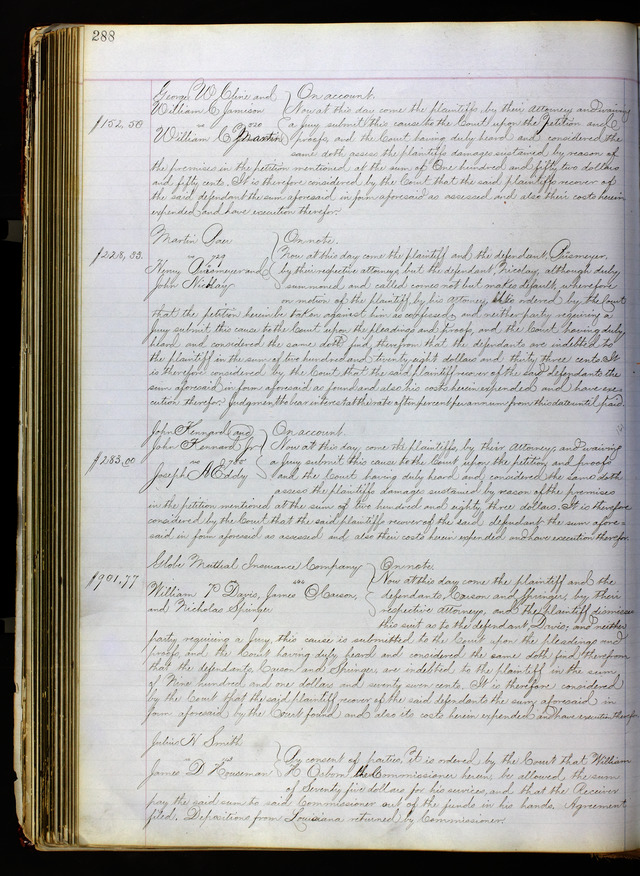 288
George W. Cline and } On account.
William C. Jamison } Now at this day come the plaintiffs by their attorney and waiving
$152.50 vs } a jury submit this cause to the Court upon the Petition and
William C. Martin } proofs, and the Court having duly heard and considered the
same doth assess the plaintiffs damages sustained by reason of
the premises in the petition mentioned at the sum of One hundred and fifty two dollars
and fifty cents. It is therefore considered by the Court that the said plaintiffs recover of
the said defendant the sum aforesaid in form aforesaid as assessed and also their costs herein
expended and have execution therefor.
Martin } On note.
$228.33. vs } Now at this day come the plaintiff and the defendant
Henry and } by their respective attorneys, but the defendant, Nicolay, although duly
John Nicolay } summoned and called comes not but makes default, wherefore
on motion of the plaintiff by his attorney, it is ordered by the Court
that the petition herein be taken against him as confessed, and neither party requiring a
jury submit this cause to the Court upon the pleadings and proofs, and the Court having duly
heard and considered the same doth find, therefrom that the defendants are indebted to
the plaintiff in the sum of two hundred and twenty eight dollars and thirty three cents. It
is therefore considered by the Court that the said plaintiff recover of the said defendants the
sum aforesaid in form aforesaid as found and also his costs herein expended and have exe-
cution therefor. Judgment to bear interest at the rate of ten percent per annum from this date until paid.
John Kennard and } On account.
John Kennard Jr } Now at this day, come the plaintiffs, by their Attorney, and waiving
$283.00 vs } a jury submit this cause to the Court upon the petition, and proofs
Joseph A Eddy } and the Court having duly heard and considered the same doth
assess the plaintiffs damages sustained by reason of the premises
in the petition mentioned at the sum of two hundred and eighty three dollars. It is therefore
considered by the Court that the said plaintiffs recover of the said defendant the sum afore-
said in form aforesaid as assessed and also their costs herein expended and have execution therefor
Globe Mutual Insurance Company } On note.
$901.77 vs } Now at this day come the plaintiff and the
William P. Davis, James Carson, } defendants, Carson and Springer, by their
and Nicholas Springer } respective attorneys, and the plaintiff dismisses
this suit as to the defendant, Davis; and neither
party requiring a jury, this cause is submitted to the Court upon the pleadings and
proofs, and the Court having duly heard and considered the same doth find therefrom
that the defendants, Carson and Springer are indebted to the plaintiff in the sum
of Nine hundred and one dollars and seventy seven cents. It is therefore considered
by the Court that the said plaintiff recover of the said defendants the sum aforesaid in
form aforesaid by the Court found and also its costs herein expended and have execution therefor
Julius N. Smith
vs } By consent of parties, it is ordered by the Court that William
James D. Houseman } H. Osborn the Commissioner herein be allowed the sum
of Seventy five dollars for his services, and that the Receiver
pay the said sum to said Commissioner out of the funds in his hands. Agreement
filed. Depositions from Louisiana returned by Commissioner.